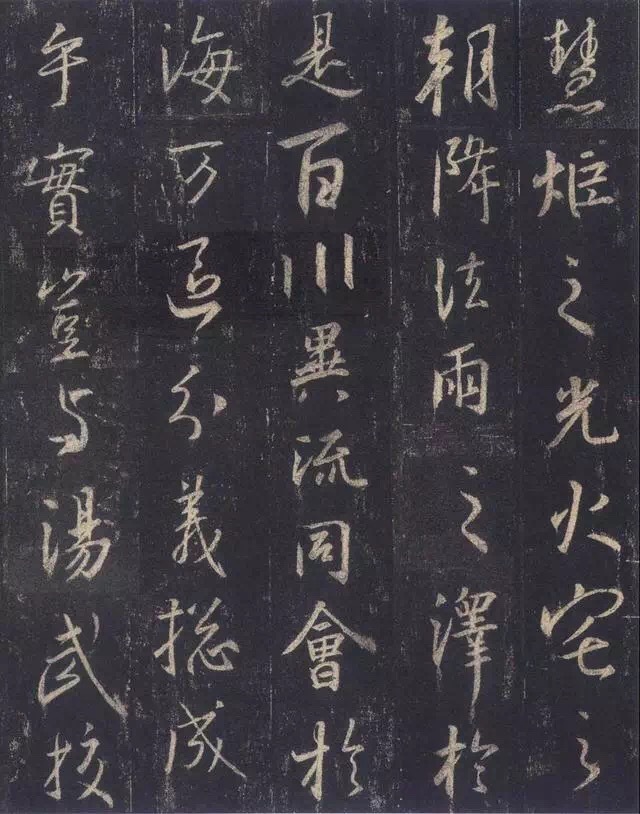 慧炬之光火宅之
朝降法雨之澤於
是百川異流同會於
海万區分義捴成
乎實豈与湯武校